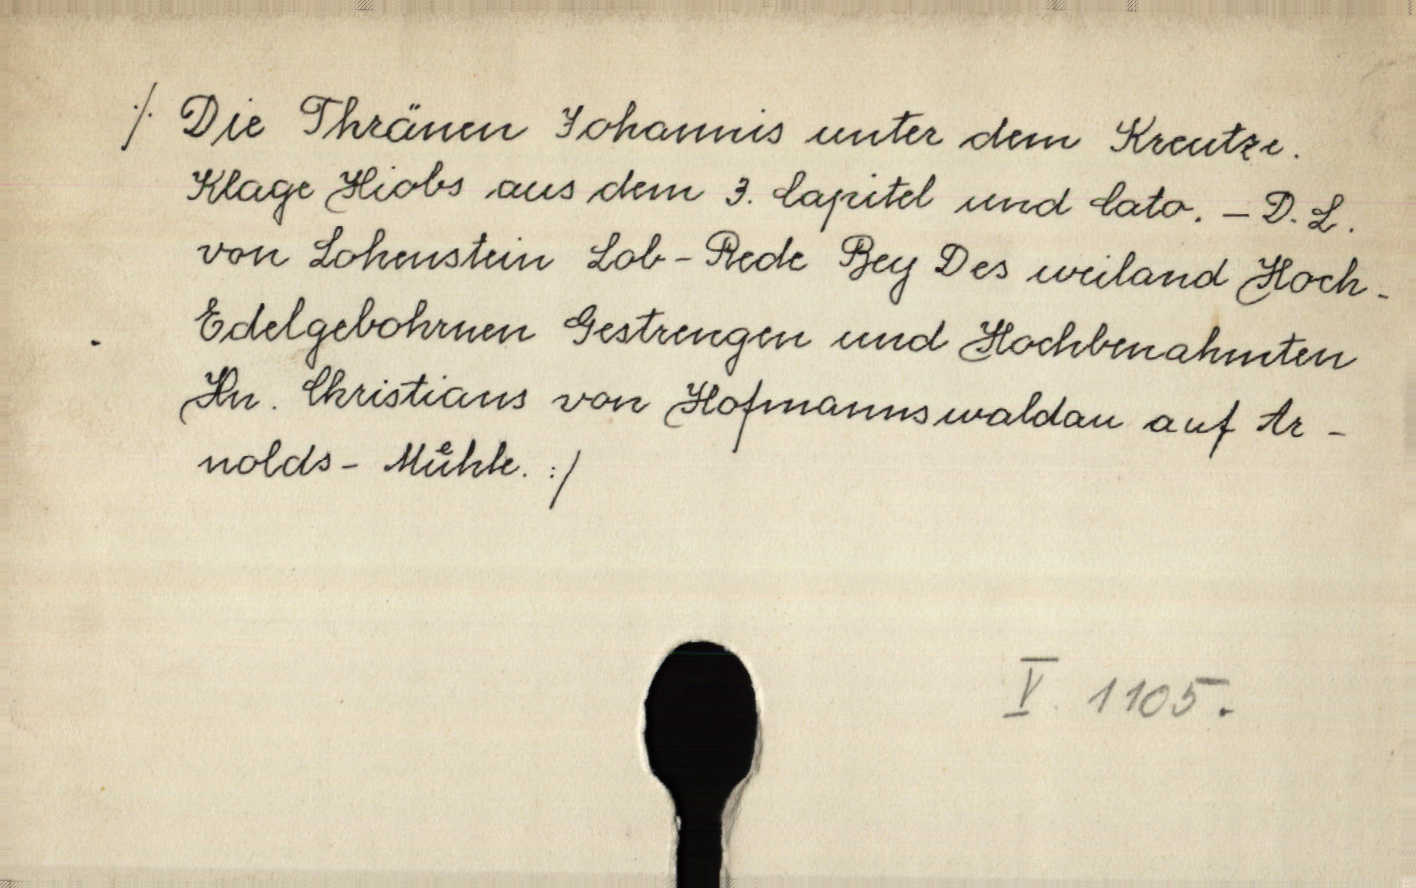 /: Die Thränen Johannis unter dem Kreutze.
Klage Hiobs aus dem 3. Capitel und Cato. – D. L.
von Lohenstein Lob-Rede Bey Des weiland Hoch-
Edelgebohrnen Gestrengen und Hochbenahmten
Hn. Christians von Hofmannswaldau auf Ar-
nolds-Můhle. :/
V 1105.